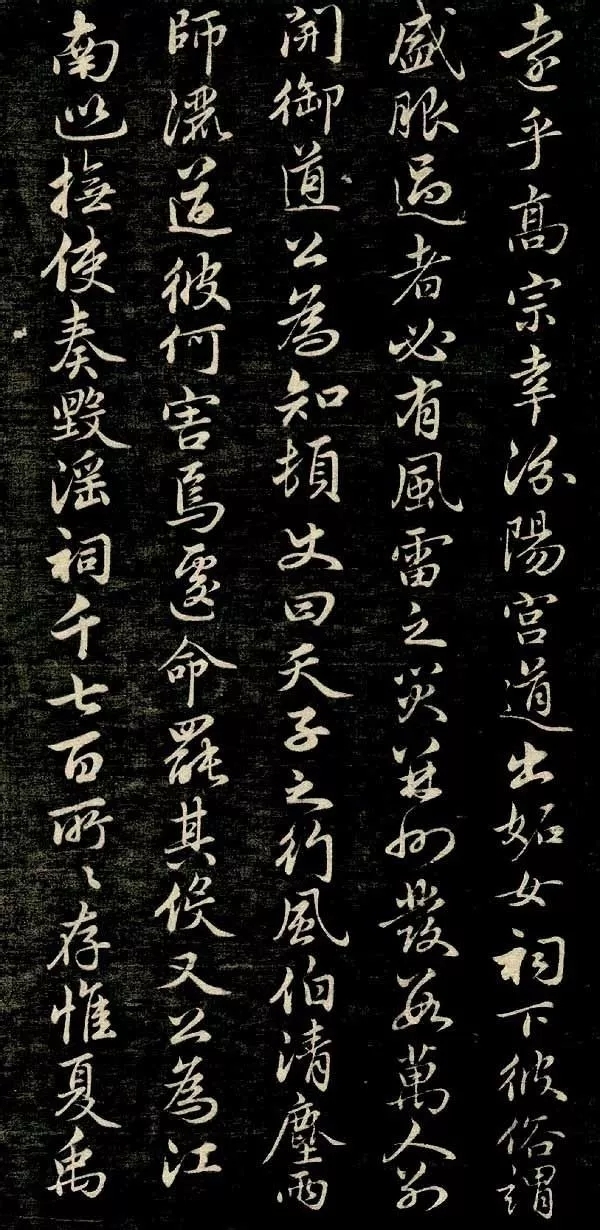 遠乎高宗幸汾陽宮道出妬女祠下彼俗謂
盛服過者必有風雷之災并州發數萬人別
開御道公為知頓史曰天子之行風伯清塵雨
師灑道彼何害焉遽命罷其役又公為江
南巡撫使奏毀淫祠千七百所〻存惟夏禹